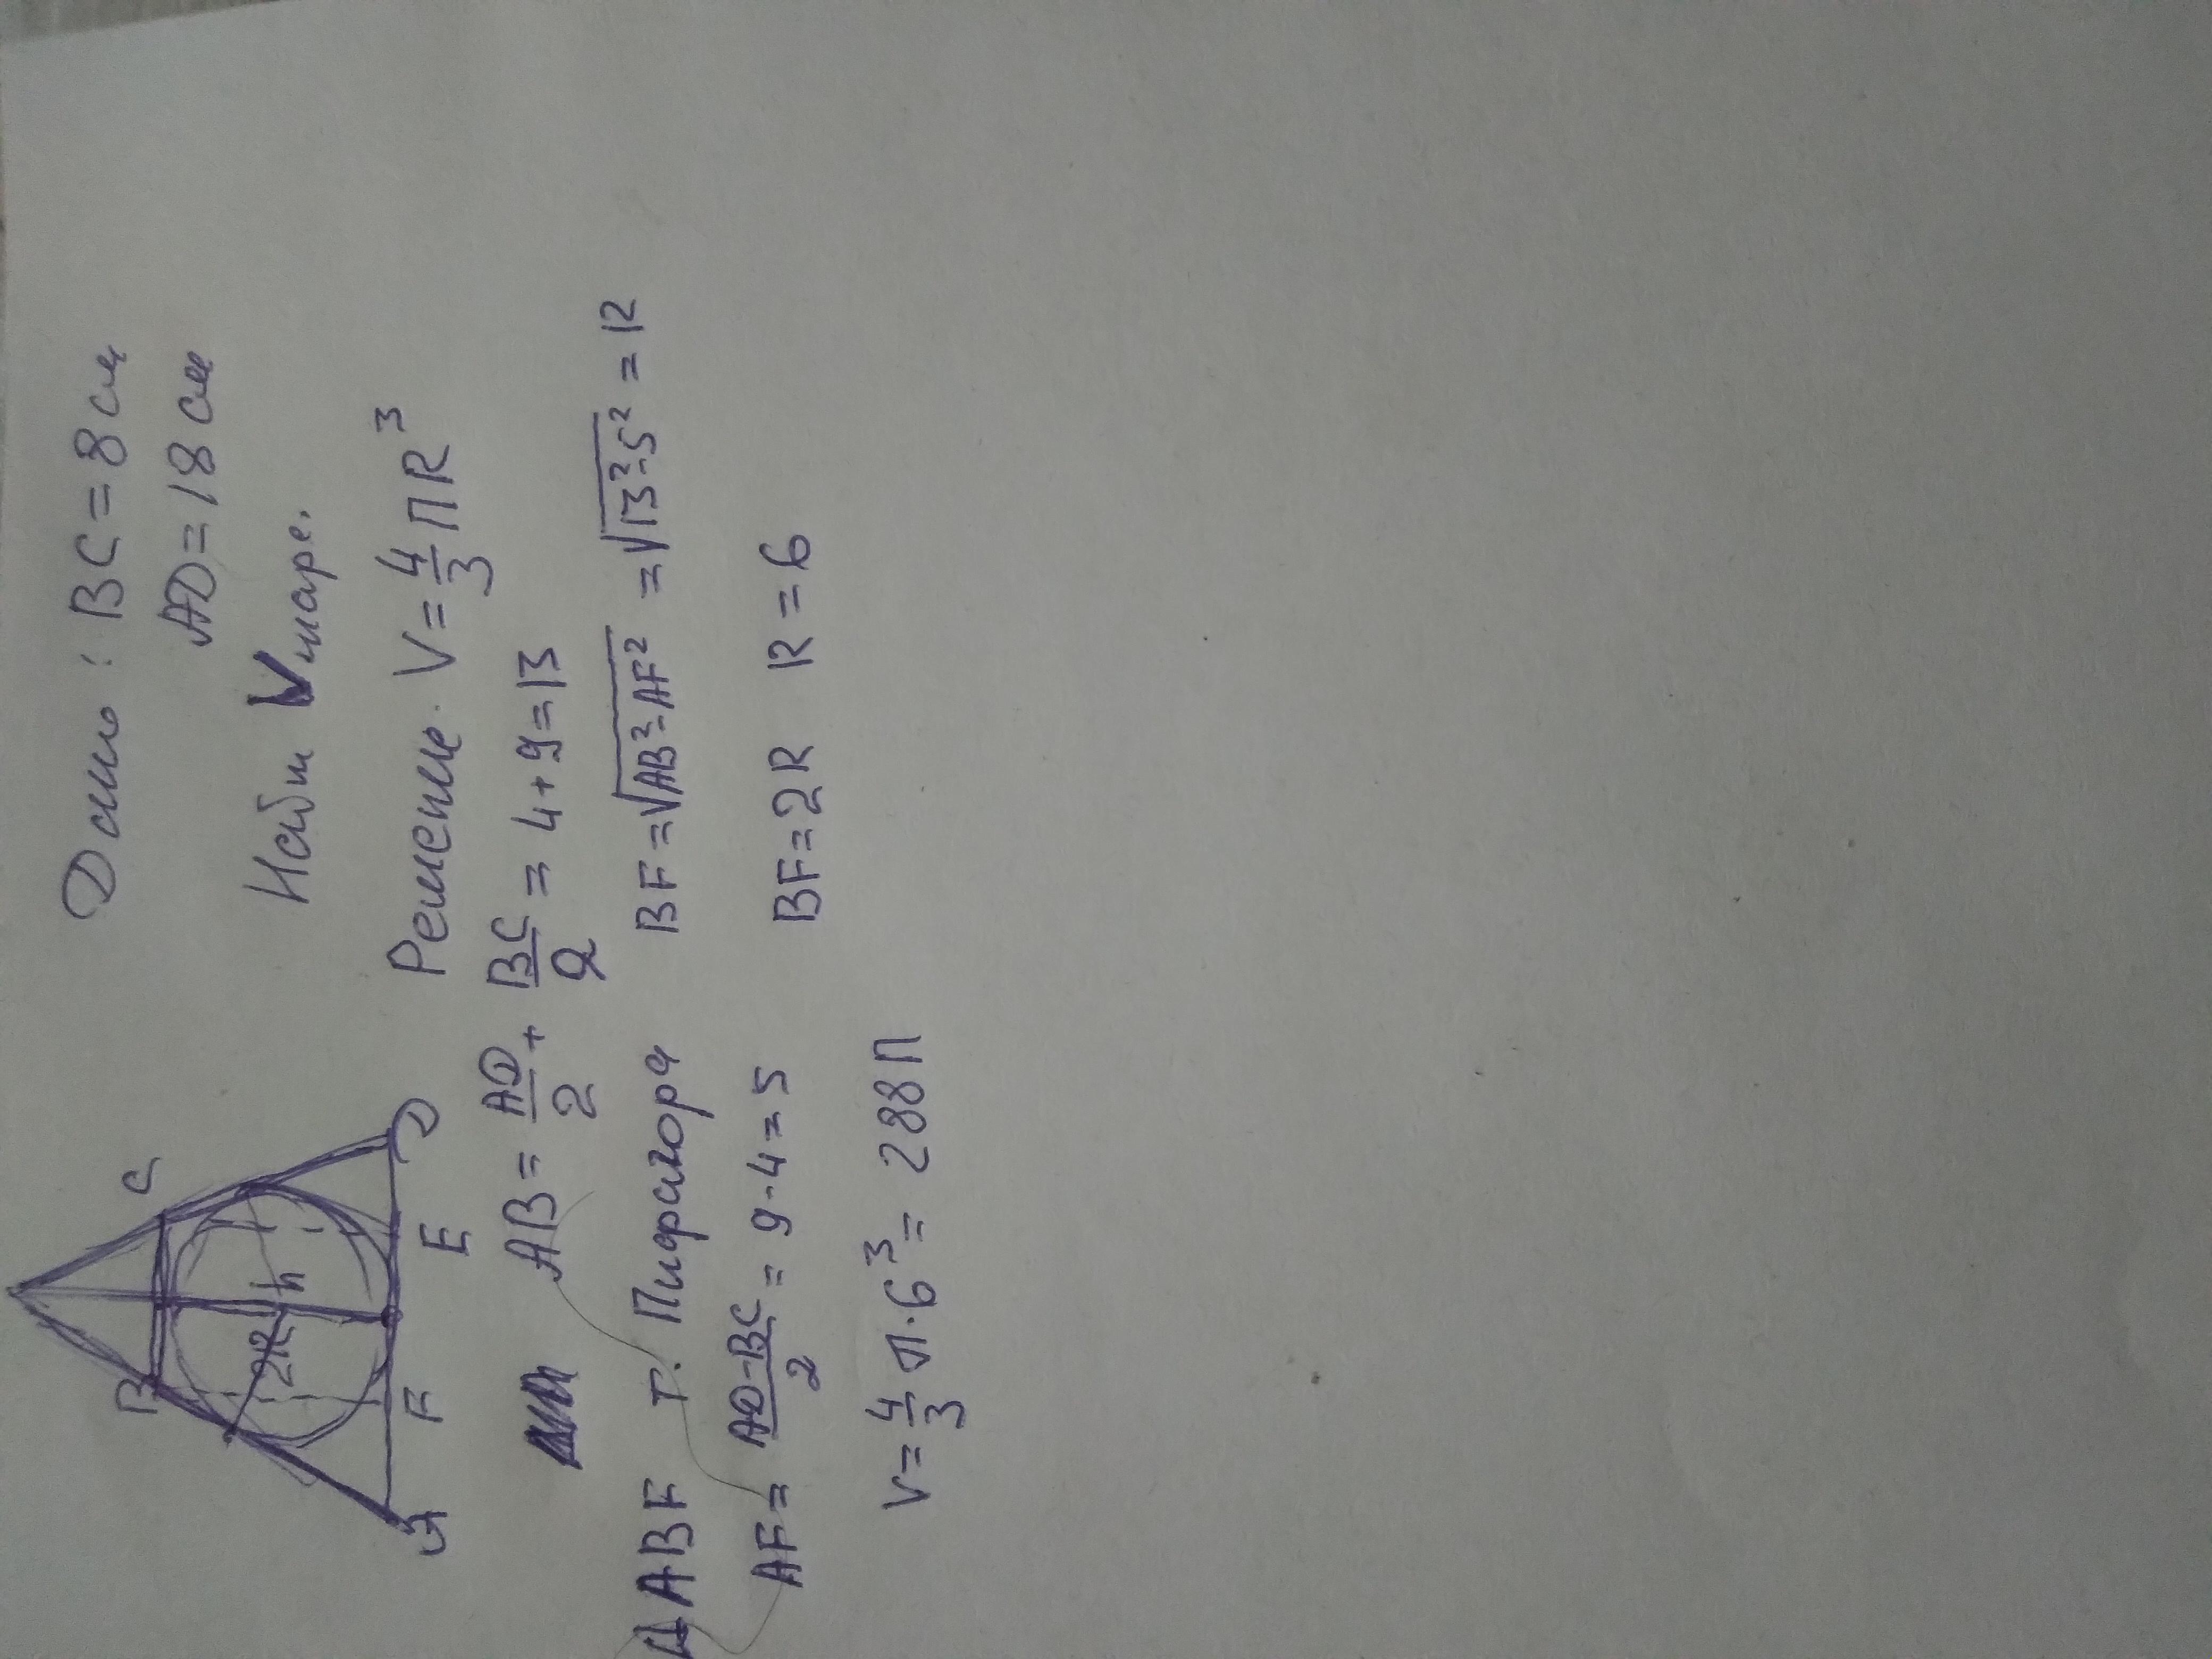 Дано: BC=8см
AD=18см
Найти Vшара.
B C
2R h
A F E D
Решение. V=4/3 ПR³
AB = AD/2 + BC/2 = 4+9=13
ΔABF т. Пифагора BF=√AB²-AF² = √13²-5² = 12
AF= AD-BC/2 = 9-4=5 BF=2R R=6
V=4/3 π·6³= 288П